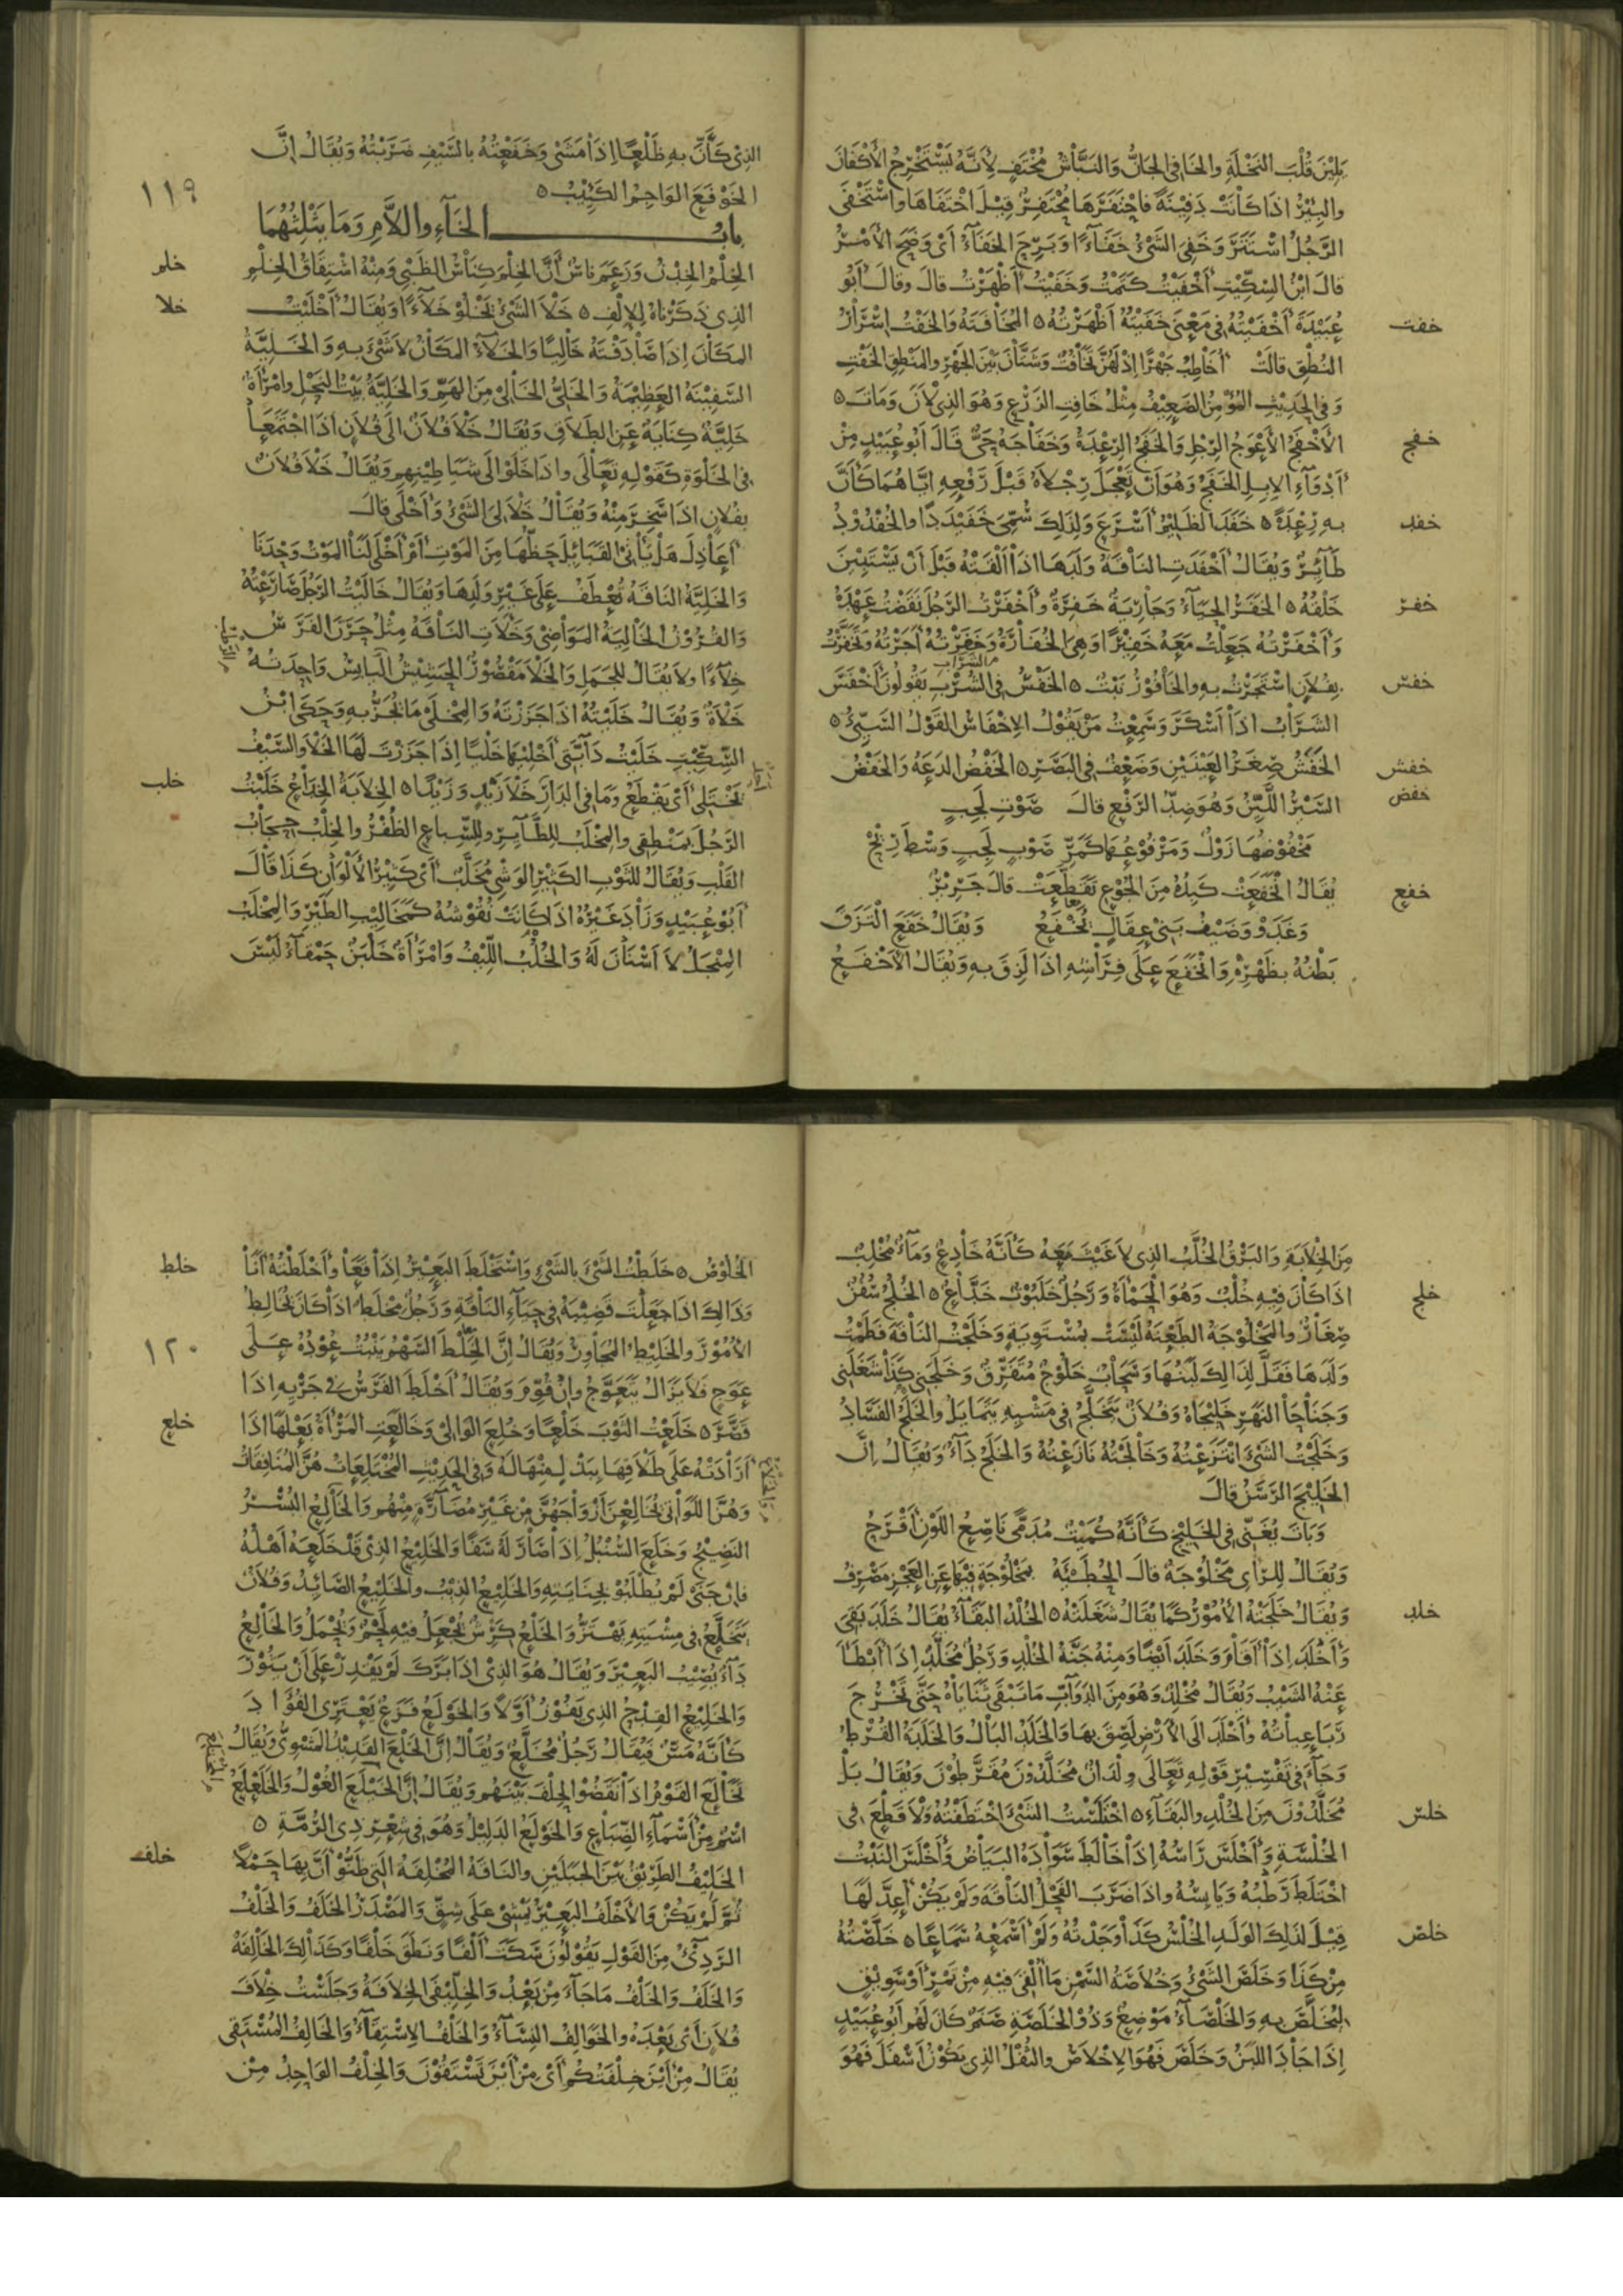 يلين قلب النخلة والخافي الجانّ والنبّاش مختف لأنه يستخرج الأكفان
والبئر اذا كانت دفينة فاحتفرها محتفر قيل اختفاها واستخفى
الرجل استتر وخفي الشيء خفاءً وبرح الخفاء أي وضح الأمر
قال ابن السكيت أخفيت كتمت وخفيت أظهرت قال وقال أبو
خفت
عبيدة أخفيته في معنى خفيته أظهرته ه المخافتة والخفت إسرار
النطق قالت أخاطب جهرًا إذ لهن تخافت وشتان بين الجهر والمنطق الخفت
وفي الحديث المؤمن الضعيف مثل خافت الزرع وهو الذي لان ومات ه
خفج
الأخفج الأعوج الرجل والخفج الرعدة وخفاجة حيّ قال أبو عبيد من
أدواء الإبل الخفج وهو أن تعجل رجلاه قبل رفعه اياهما كأنّ
خفد
به رعدة ه خفد الظليم أسرع ولذلك سمي خفيددًا والخفدود
طائر ويقال أخفدت الناقة ولدها اذا ألقته قبل أن يستبين
خفر
خلقه ه الخفر الحياء وجارية خفرة وأخفرت الرجل نقضت عهده
وأخفرته جعلت معه خفيرًا وهي الخفارة وخفرته أجرته وتخفرت
خفس
بفلان استجرت به والخافور نبت ه الخفس في الشرب يقولون أخفس
الشراب
الشراب اذا أسكر وسمعت من يقول الإخفاس القول السيّئ ه
خفش
الخفش صغر العينين وضعف في البصر ه الخفض الدعة والخفض
خفض
السير الليّن وهو ضد الرفع قال صوت لجب
مخفوضها زول ومرفوعها كمرّ صوب لجب وسط ريح
خفع
يقال انخفعت كبده من الجوع تقطعت قال جرير
وغدو وضيف بني عقال تخفع ويقال خفع التزق
بطنه بظهره وانخفع على فراشه اذا لزق به ويقال الأخفع
١١٩
الذي كأنّ به ظلعًا اذا مشى وخفعته بالسيف ضربته ويقال انّ
الخوفع الواجم الكئيب ه
باب الخاء واللام وما يثلثهما
خلم
الخلم الخدن وزعم ناس أنّ الخلم كناس الظبي ومنه اشتقاق الخلم
خلا
الذي ذكرناه للإلف ه خلا الشيء يخلو خلاءً ويقال أخليت
المكان إذا صادفته خاليًا والخلاء المكان لا شيء به والخلية
السفينة العظيمة والخلي الخالي من الهم والخلية بيت النحل وامرأة
خلية كناية عن الطلاق ويقال خلا فلان الى فلان اذا اجتمعا
في الخلوة كقوله تعالى واذا خلوا الى شياطينهم ويقال خلا فلان
بفلان اذا سخر منه ويقال خلا لي الشيء وأخلى قال
أعاذل هل يأتي القبائل حظها من الموت أم أخلى لنا الموت وحدنا
والخلية الناقة تعطف على غير ولدها ويقال خاليت الرجل صارعته
والقرون الخالية المواضي وخلأت الناقة مثل حرن الفرس
خلاءًا ولا يقال للجمل والخلا مقصور الحشيش اليابس واحدته
خلاة ويقال خليته اذا جززته والمخلى ما تجزّ به وحكى ابن
السكيت خليت دابتي أخليها خليًا إذا جززت لها الخلا والسيف
خلب
يختلي أي يقطع وما في الدار خلا زيد وزيدًا ه الخلابة الخداع خلبت
الرجل بمنطقي والمخلب للطائر وللسباع الظفر والخلب حجاب
القلب ويقال للثوب الكثير الوشي مخلّب أي كثير الألوان كذا قال
أبو عبيد وزاد غيره اذا كانت نقوشه كمخاليب الطير والمخلب
المنجل لا أسنان له والخلب الليف وامرأة خلبن حمقاء ليس
من الخلابة والبرق الخلّب الذي لا غيث معه كأنه خادع وماء مخلب
خلج
اذا كان فيه خلب وهو الحمأة ورجل خلبوت خداع ه الخلج سفن
صغار والمخلوجة الطعنة ليست بمستوية وخلجت الناقة فطمت
ولدها فقلّ لذلك لبنها وسحاب خلوج متفرق وخلجني كذا شغلني
وجناحا النهر خليجاه وفلان يتخلج في مشيه يتمايل والخلج الفساد
وخلجت الشيء انتزعته وخالجته نازعته والخلج داء ويقال انّ
الخليج الرسن قال
وبات يغنّي في الخليج كأنه كميت مدمّى ناصع اللون أقرح
ويقال للرأي مخلوجة قال الحطيئة بمخلوجة فيها عن العجز مصرف
خلد
ويقال خلجته الأمور كما يقال شغلته ه الخلد البقاء يقال خلد بقي
وأخلد اذا أقام وخلد أيضًا ومنه جنة الخلد ورجل مخلد إذا أبطأ
عنه الشيب ويقال مخلد وهو من الدواب ما تبقى ثناياه حتى تخرج
رباعياته وأخلد الى الأرض لصق بها والخلد البال والخلدة القرط
وجاء في تفسير قوله تعالى ولدان مخلدون مقرّطون ويقال بل
خلس
مخلدون من الخلد والبقاء ه اختلست الشيء اختطفته ولا قطع في
الخلسة وأخلس رأسه إذا خالط سواده البياض وأخلس النبت
اختلط رطبه ويابسه واذا ضرب الفحل الناقة ولم يكن أعد لها
خلص
قيل لذلك الولد الخلس كذا وجدته ولم أسمعه سماعًا ه خلصته
من كذا وخلص الشيء وخلاصة السمن ما ألقي فيه من تمر أو سويق
ليخلص به والخلصاء موضع وذو الخلصة صنم كان لهم أبو عبيد
إذا جاد اللبن وخلص فهو الإخلاص والثفل الذي يكون أسفل فهو
خلط
الخلوص ه خلطت الشيء بالشيء واستخلط البعير إذا قعا وأخلطته أنا
وذلك اذا جعلت قضيبه في حياء الناقة ورجل مخلط اذا كان يخالط
١٢٠
الأمور والخليط المجاور ويقال انّ الخلط السهم ينبت عوده على
عوج فلا يزال يتعوج وإن قوّم ويقال أخلط الفرس في جريه اذا
خلع
قصر ه خلعت الثوب خلعًا وخلع الوالي وخالعت المرأة بعلها اذا
أرادته على طلاقها ببذل منها له وفي الحديث المختلعات هنّ المنافقات
وهنّ اللواتي يخالعن أزواجهن من غير مضارّة منهم والخالع البسر
النضيج وخلع السنبل إذا صار له سفًا والخليع الذي قد خلعه أهله
فإن جنى لم يطلبو بجنايته والخليع الذئب والخليع الصائد وفلان
يتخلع في مشيته يهتز والخلع كرش يجعل فيه لحم ويحمل والخالع
داء يصيب البعير ويقال هو الذي اذا برك لم يقدر على أن يثور
والخليع القدح الذي يفوز أولًا والخولع فزع يعتري الفؤاد
كأنه مسّ فيقال رجل مخلّع ويقال إن الخلع القديد المشوي ويقال
تخالع القوم اذا نقضوا الحلف بينهم ويقال إن الخيلع الغول والخلعلع
اسم من أسماء الضباع والخولع الدليل وهو في شعر ذي الرمّة ه
خلف
الخليف الطريق بين الجبلين والناقة المخلفة التي ظنوا أنّ بها حملًا
ثم لم يكن والأخلف البعير يمشي على شق والمصدر الخلف والخلف
الرديّ من القول يقولون سكت ألفًا ونطق خلفًا وكذلك الخالفة
والخلف والخلف ما جاء من بعد والخليفى الخلافة وجلست خلاف
فلان أي بعده والخوالف النساء والخلف الاستقاء والخالف المستقي
يقال من أين خلفتكم أي من أين تستقون والخلف الواحد من